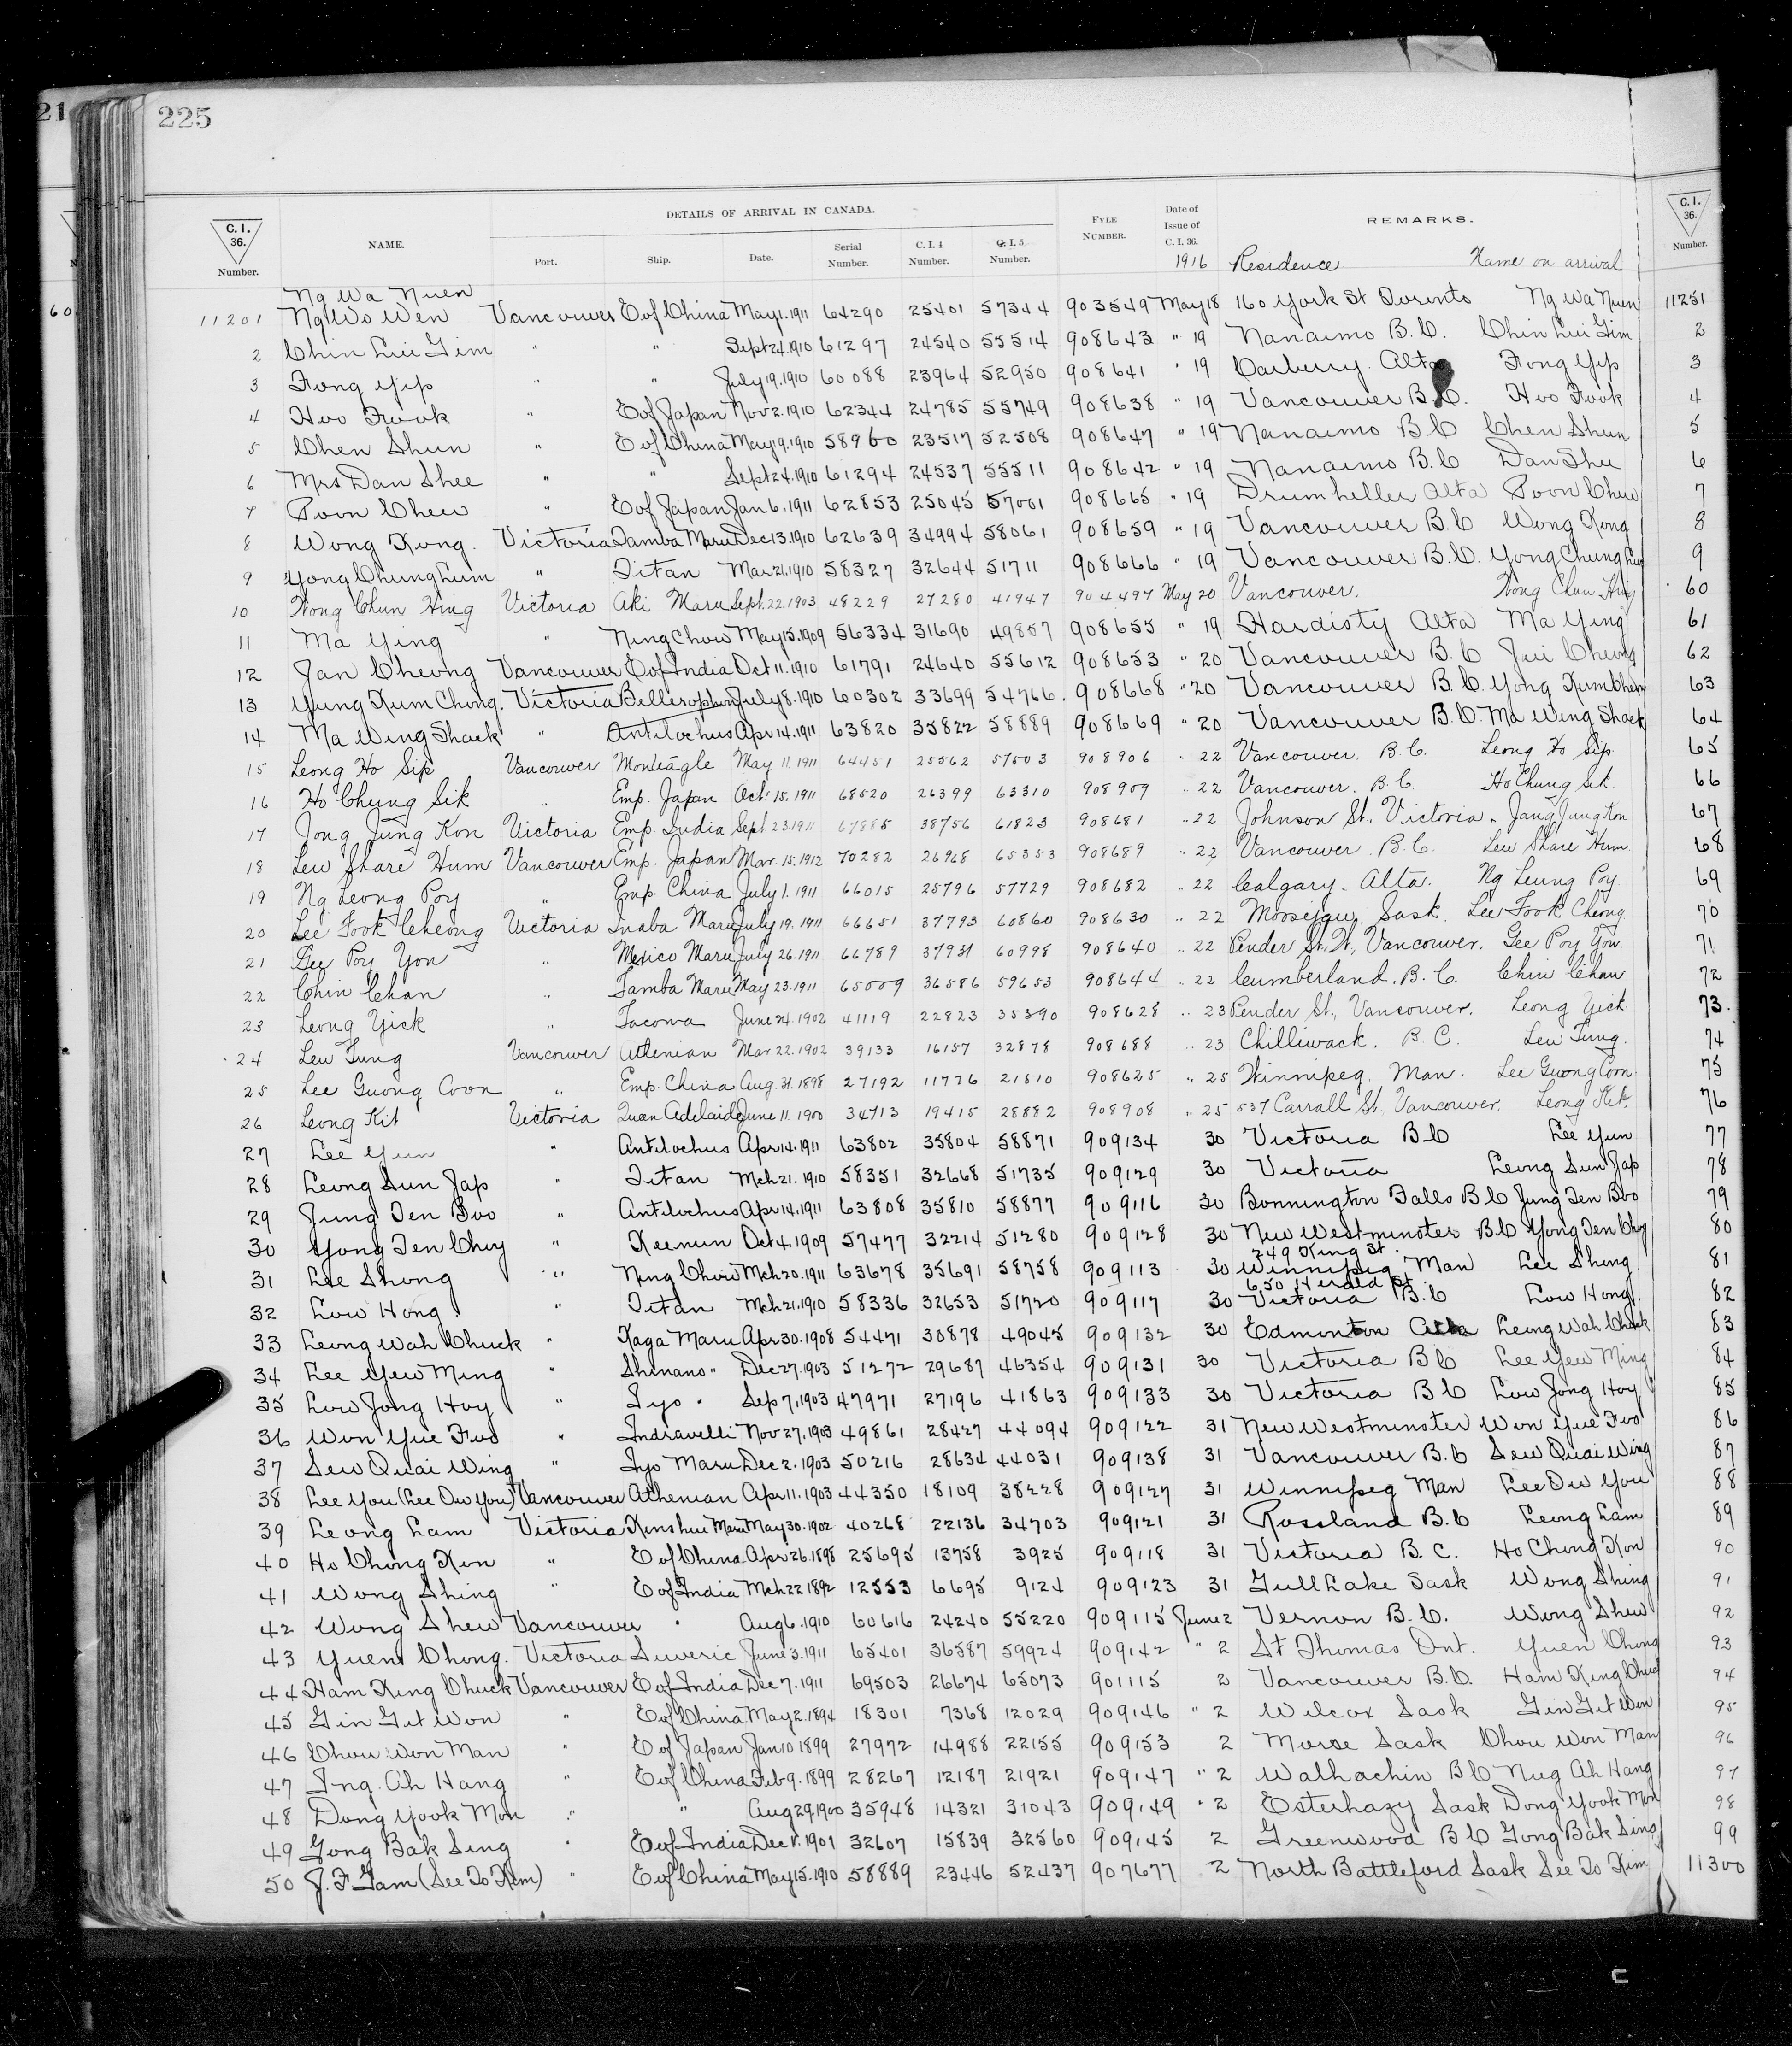 21
225
C. I. 36. Number.
NAME.
DETAILS OF ARRIVAL IN CANADA.
Port. Ship. Date. Serial Number. C. I. 4 Number. C. I. 5 Number.
FYLE NUMBER.
Date of Issue of C. I. 36. 1916
REMARKS.
Residence Name on arrival
C. I. 36. Number.
60
Ng Wa Nuen
11201 Ng Wo Wen Vancouver E of China May 1. 1911 64290 25401 57344 903549 May 18 160 York St Toronto Ng Wa Nuen 11251
2 Chin Lui Gim " " Sept 24. 1910 61297 24540 55514 908643 " 19 Nanaimo B.C. Chin Lui Gim 2
3 Fong Yip " " July 19. 1910 60088 23964 52950 908641 " 19 Carberry. Alta Fong Yip 3
4 Hoo Fook " E of Japan Nov 2. 1910 62344 24785 55749 908638 " 19 Vancouver B.C. Hoo Fook 4
5 Chen Shun " E of China May 19. 1910 58960 23517 52508 908647 " 19 Nanaimo B C Chen Shun 5
6 Mrs Dan Shee " " Sept 24. 1910 61294 24537 55511 908642 " 19 Nanaimo B.C Dan Shee 6
7 Poon Chew " E of Japan Jan 6. 1911 62853 25045 57001 908665 " 19 Drumheller Alta Poon Chew 7
8 Wong Kong. Victoria Tamba Maru Dec 13. 1910 62639 34994 58061 908659 " 19 Vancouver B.C Wong Kong 8
9 Yong Chung Lum " Titan Mar 21. 1910 58327 32644 51711 908666 " 19 Vancouver B.C. Yong Chung Lum 9
10 Wong Chun Hing Victoria Aki Maru Sept. 22. 1903 48229 27280 41947 904497 May 20 Vancouver. Wong Chun Hing 60
11 Ma Ying " Ning Chow May 15. 1909 56334 31690 49857 908655 " 19 Hardisty Alta Ma Ying 61
12 Jan Cheong Vancouver E of India Oct 11. 1910 61791 24640 55612 908653 " 20 Vancouver B.C Jui Cheong 62
13 Yung Kum Chong. Victoria Bellerophon July 8. 1910 60302 33699 54766. 908668 " 20 Vancouver B.C. Yong Kum Chong 63
14 Ma Wing Shack " Antilochus Apr 14. 1911 63820 35822 58889 908669 " 20 Vancouver B.C. Ma Wing Shack 64
15 Leong Ho Sip Vancouver Monteagle May 11. 1911 64451 25562 57503 908906 .. 22 Vancouver. B.C. Leong Ho Sip. 65
16 Ho Chung Sik .. Emp. Japan Oct. 15. 1911 68520 26399 63310 908909 .. 22 Vancouver. B.C. Ho Chung Sik. 66
17 Jong Jung Kon Victoria Emp. India Sept. 23. 1911 67885 38756 61823 908681 .. 22 Johnson St. Victoria. Jang Jung Kon 67
18 Lew Share Hum Vancouver Emp. Japan Mar. 15. 1912 70282 26968 65353 908689 .. 22 Vancouver. B.C. Lew Share Hum. 68
19 Ng Leong Poy .. Emp. China July 1. 1911 66015 25796 57729 908682 .. 22 Calgary. Alta. Ng Leung Poy. 69
20 Lee Fook Cheong Victoria Inaba Maru July 19. 1911 66651 37793 60860 908630 .. 22 Moosejaw, Sask. Lee Fook Cheong. 70
21 Gee Poy Yon .. Mexico Maru July 26. 1911 66789 37931 60998 908640 .. 22 Pender St. W., Vancouver. Gee Poy Yon. 71
22 Chin Chan .. Tamba Maru May 23. 1911 65009 36586 59653 908644 .. 22 Cumberland. B.C. Chin Chan 72
23 Leong Yick .. Tacoma June 24. 1902 41119 22823 35390 908628 .. 23 Pender St., Vancouver. Leong Yick. 73.
24 Lew Tung Vancouver Athenian Mar. 22. 1902 39133 16157 32878 908688 .. 23 Chilliwack. B.C. Lew Tung. 74
25 Lee Guong Coon .. Emp. China Aug. 31. 1898 27192 11776 21510 908625 .. 25 Winnipeg. Man. Lee Guong Coon 75
26 Leong Kit Victoria Quan Adelaide June 11. 1900 34713 19415 28882 908908 .. 25 537 Carrall St. Vancouver. Leong Kit. 76
27 Lee Yun " Antilochus Apr 14. 1911 63802 35804 58871 909134 30 Victoria B C Lee Yun 77
28 Leong Sun Jap " Titan Mch 21. 1910 58351 32668 51735 909129 30 Victoria Leong Sun Jap 78
29 Jung Ten Boo " Antilochus Apr 14. 1911 63808 35810 58877 909116 30 Bonnington Falls B C Jung Ten Boo 79
30 Yong Ten Choy " Keemun Oct 4. 1909 57477 32214 51280 909128 30 New Westminster B C Yong Ten Choy 80
249 King St.
31 Lee Shong " Ning Chow Mch 20. 1911 63678 35691 58758 909113 30 Winnipeg Man Lee Shong. 81
650 Herald St.
32 Low Hong " Titan Mch 21. 1910 58336 32653 51720 909117 30 Victoria B.C Low Hong. 82
33 Leong Wah Chuck " Kaga Maru Apr 30. 1908 54471 30878 49045 909132 30 Edmonton Alta Leong Wah Chuck 83
34 Lee Yew Ming " Shinano " Dec 27. 1903 51272 29687 46354 909131 30 Victoria B C Lee Yew Ming 84
35 Low Jong Hoy " Iyo " Sep 7. 1903 47971 27196 41863 909133 30 Victoria B C Low Jong Hoy 85
36 Won Yue Foo " Indravelli Nov 27. 1903 49861 28427 44094 909122 31 New Westminster Won Yue Foo 86
37 Sew Quai Wing " Iyo Maru Dec 2. 1903 50216 28634 44031 909138 31 Vancouver B.C Sew Quai Wing 87
38 Lee You (Lee Ow You) Vancouver Athenian Apr 11. 1903 44350 18109 38228 909127 31 Winnipeg Man Lee Ow You 88
39 Leong Lam Victoria Kinshiu Maru May 30. 1902 40268 22136 34703 909121 31 Rossland B.C Leong Lam 89
40 Ho Chong Kon " E of China Apr 26. 1898 25695 13758 3925 909118 31 Victoria B.C. Ho Chong Kon 90
41 Wong Shing " E of India Mch 22 1892 12553 6695 9124 909123 31 Gull Lake Sask Wong Shing 91
42 Wong Shew Vancouver " Aug 6. 1910 60616 24240 55220 909115 June 2 Vernon B.C. Wong Shew 92
43 Yuen Chong. Victoria Suveric June 3. 1911 65401 36587 59924 909142 " 2 St Thomas Ont. Yuen Chong 93
44 Ham King Chuck Vancouver E of India Dec 7. 1911 69503 26674 65073 901115 2 Vancouver B.C. Ham King Chuck 94
45 Gin Git Won " E of China May 2. 1894 18301 7368 12029 909146 " 2 Wilcox Sask Gin Git Won 95
46 Chou Won Man " E of Japan Jan 10 1899 27972 14988 22155 909153 2 Morse Sask Chou Won Man 96
47 Ing. Ah Hang " E of China Feb 9. 1899 28267 12187 21921 909147 " 2 Walhachin B C Nug Ah Hang 97
48 Dong Yook Mon " " Aug 29. 1900 35948 14321 31043 909149 " 2 Esterhazy Sask Dong Yook Mon 98
49 Gong Bak Sing " E of India Dec 1. 1901 32607 15839 32560 909145 2 Greenwood B C Gong Bak Sing 99
50 J. F Gam (See To Kem) " E of China May 15. 1910 58889 23446 52437 907677 2 North Battleford Sask See To Kim 11300